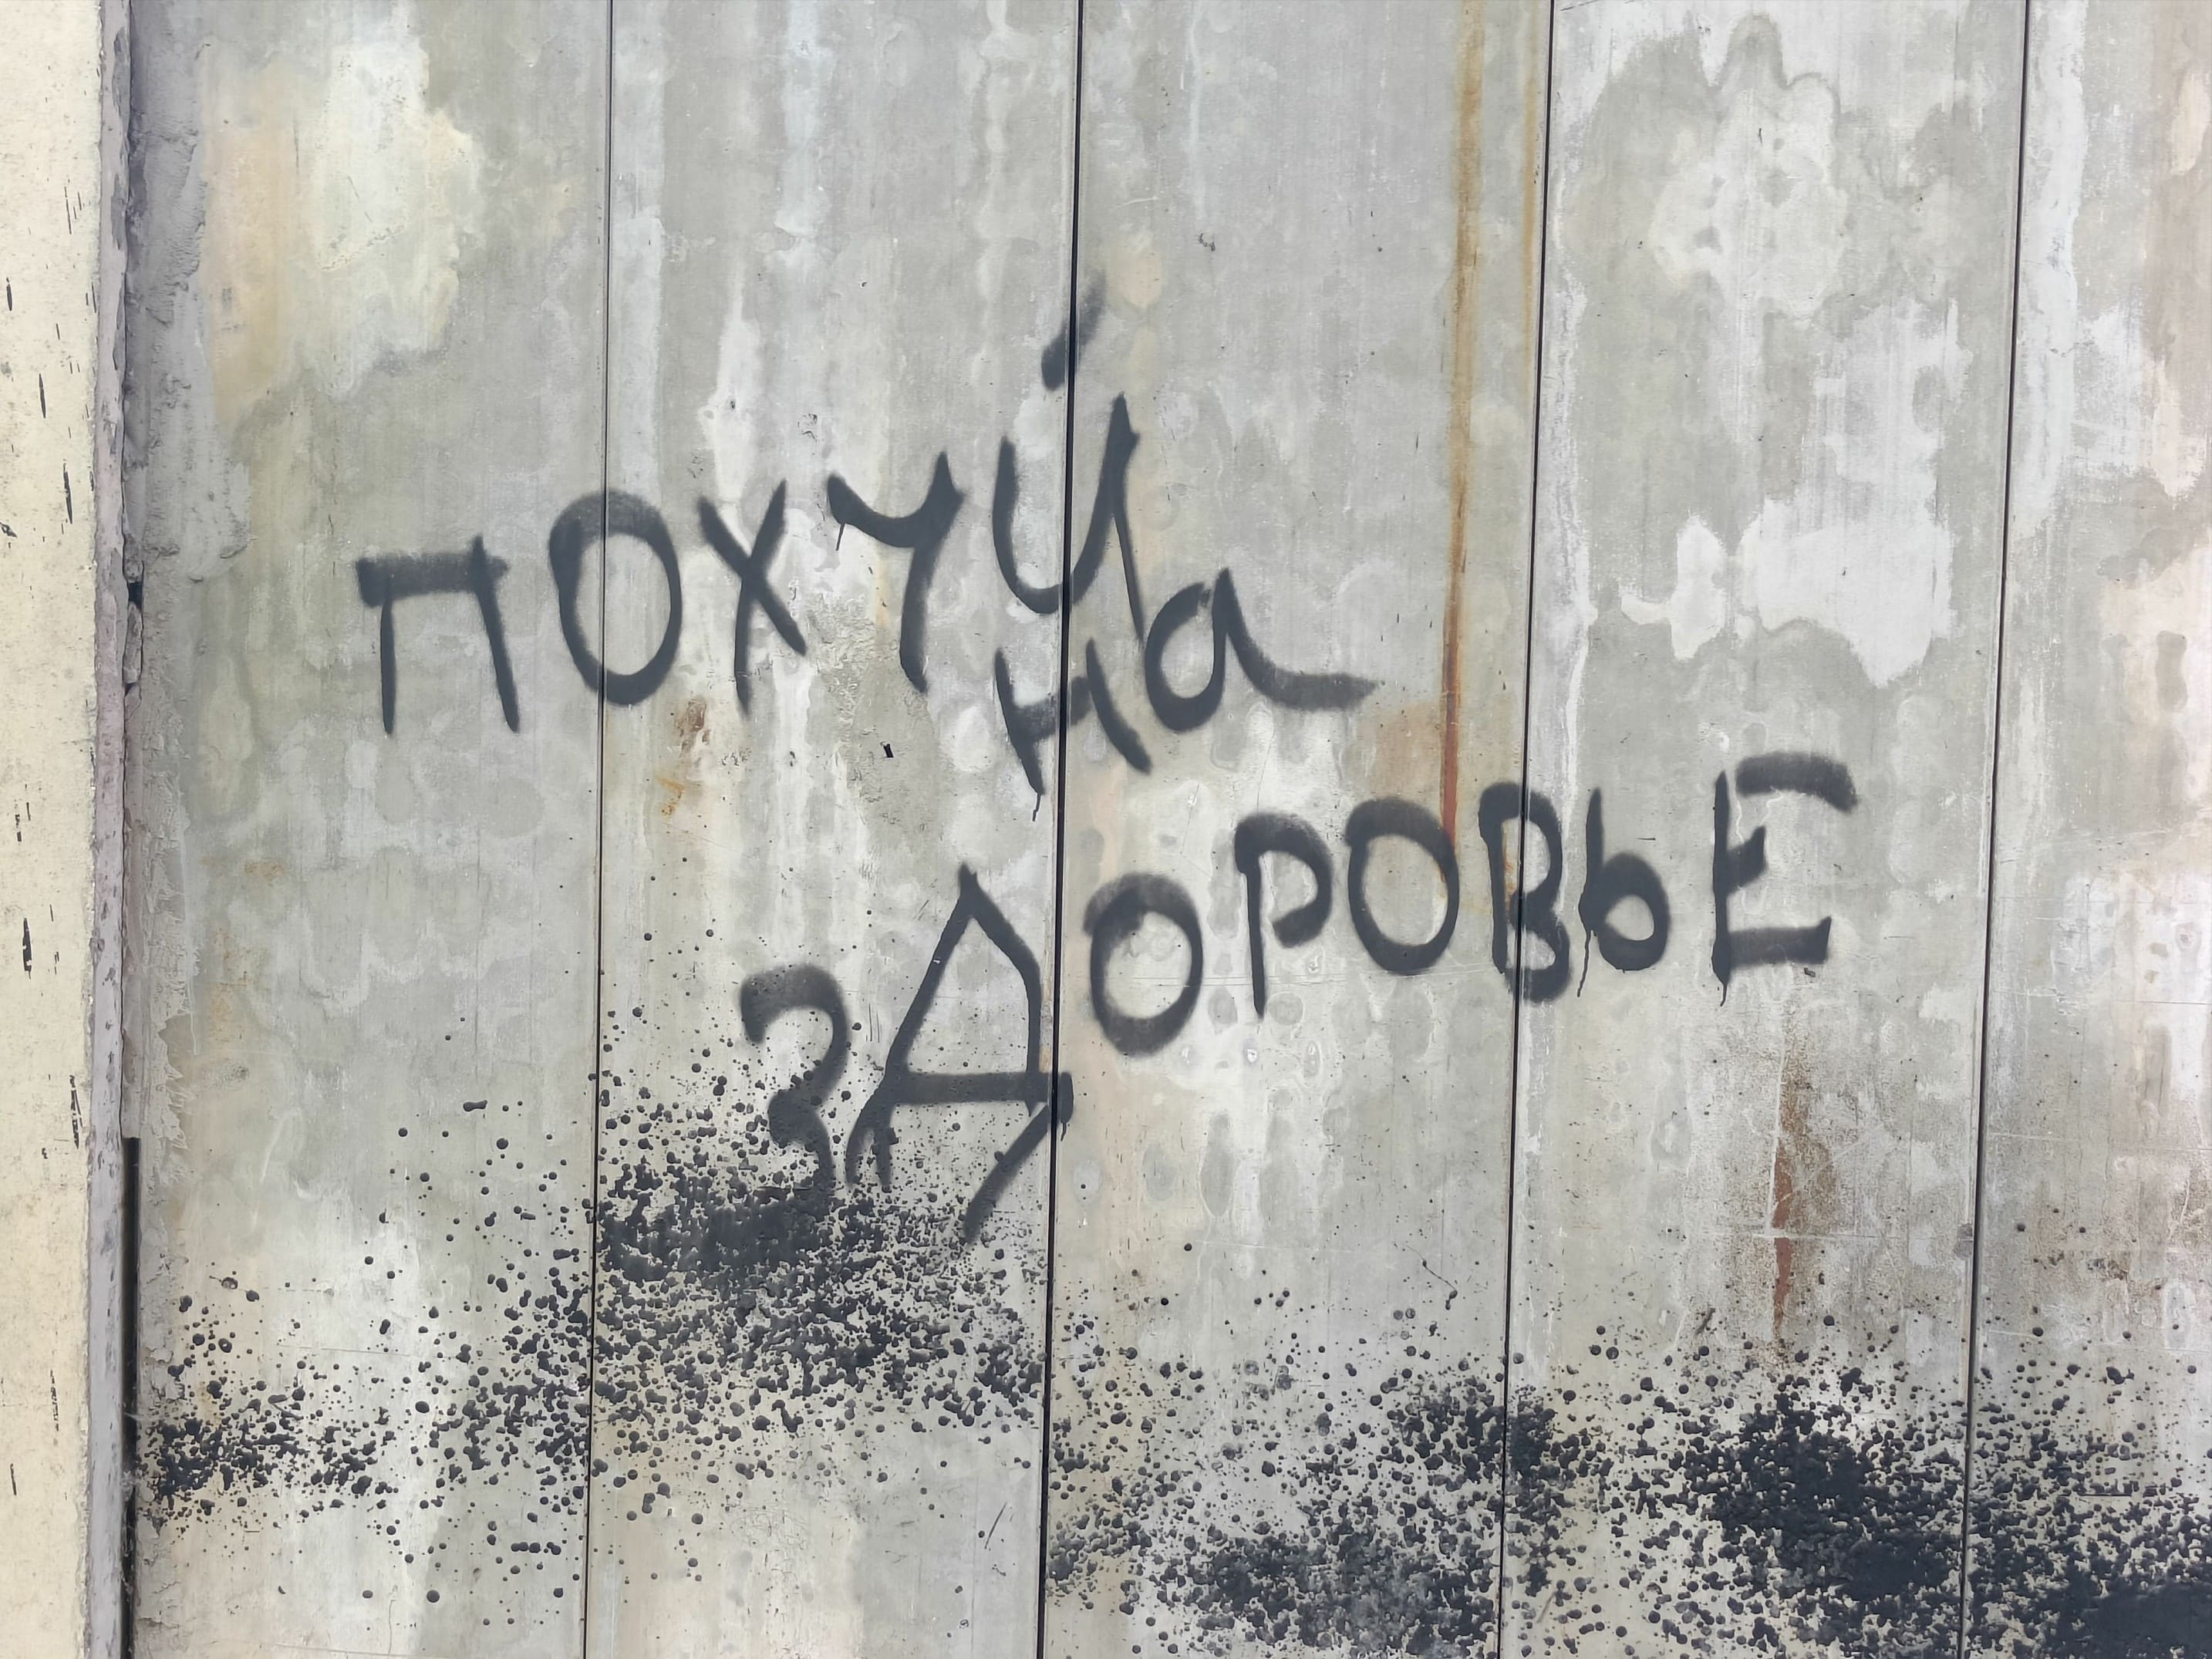 ПОХУЙ
на
ЗДОРОВЬЕ